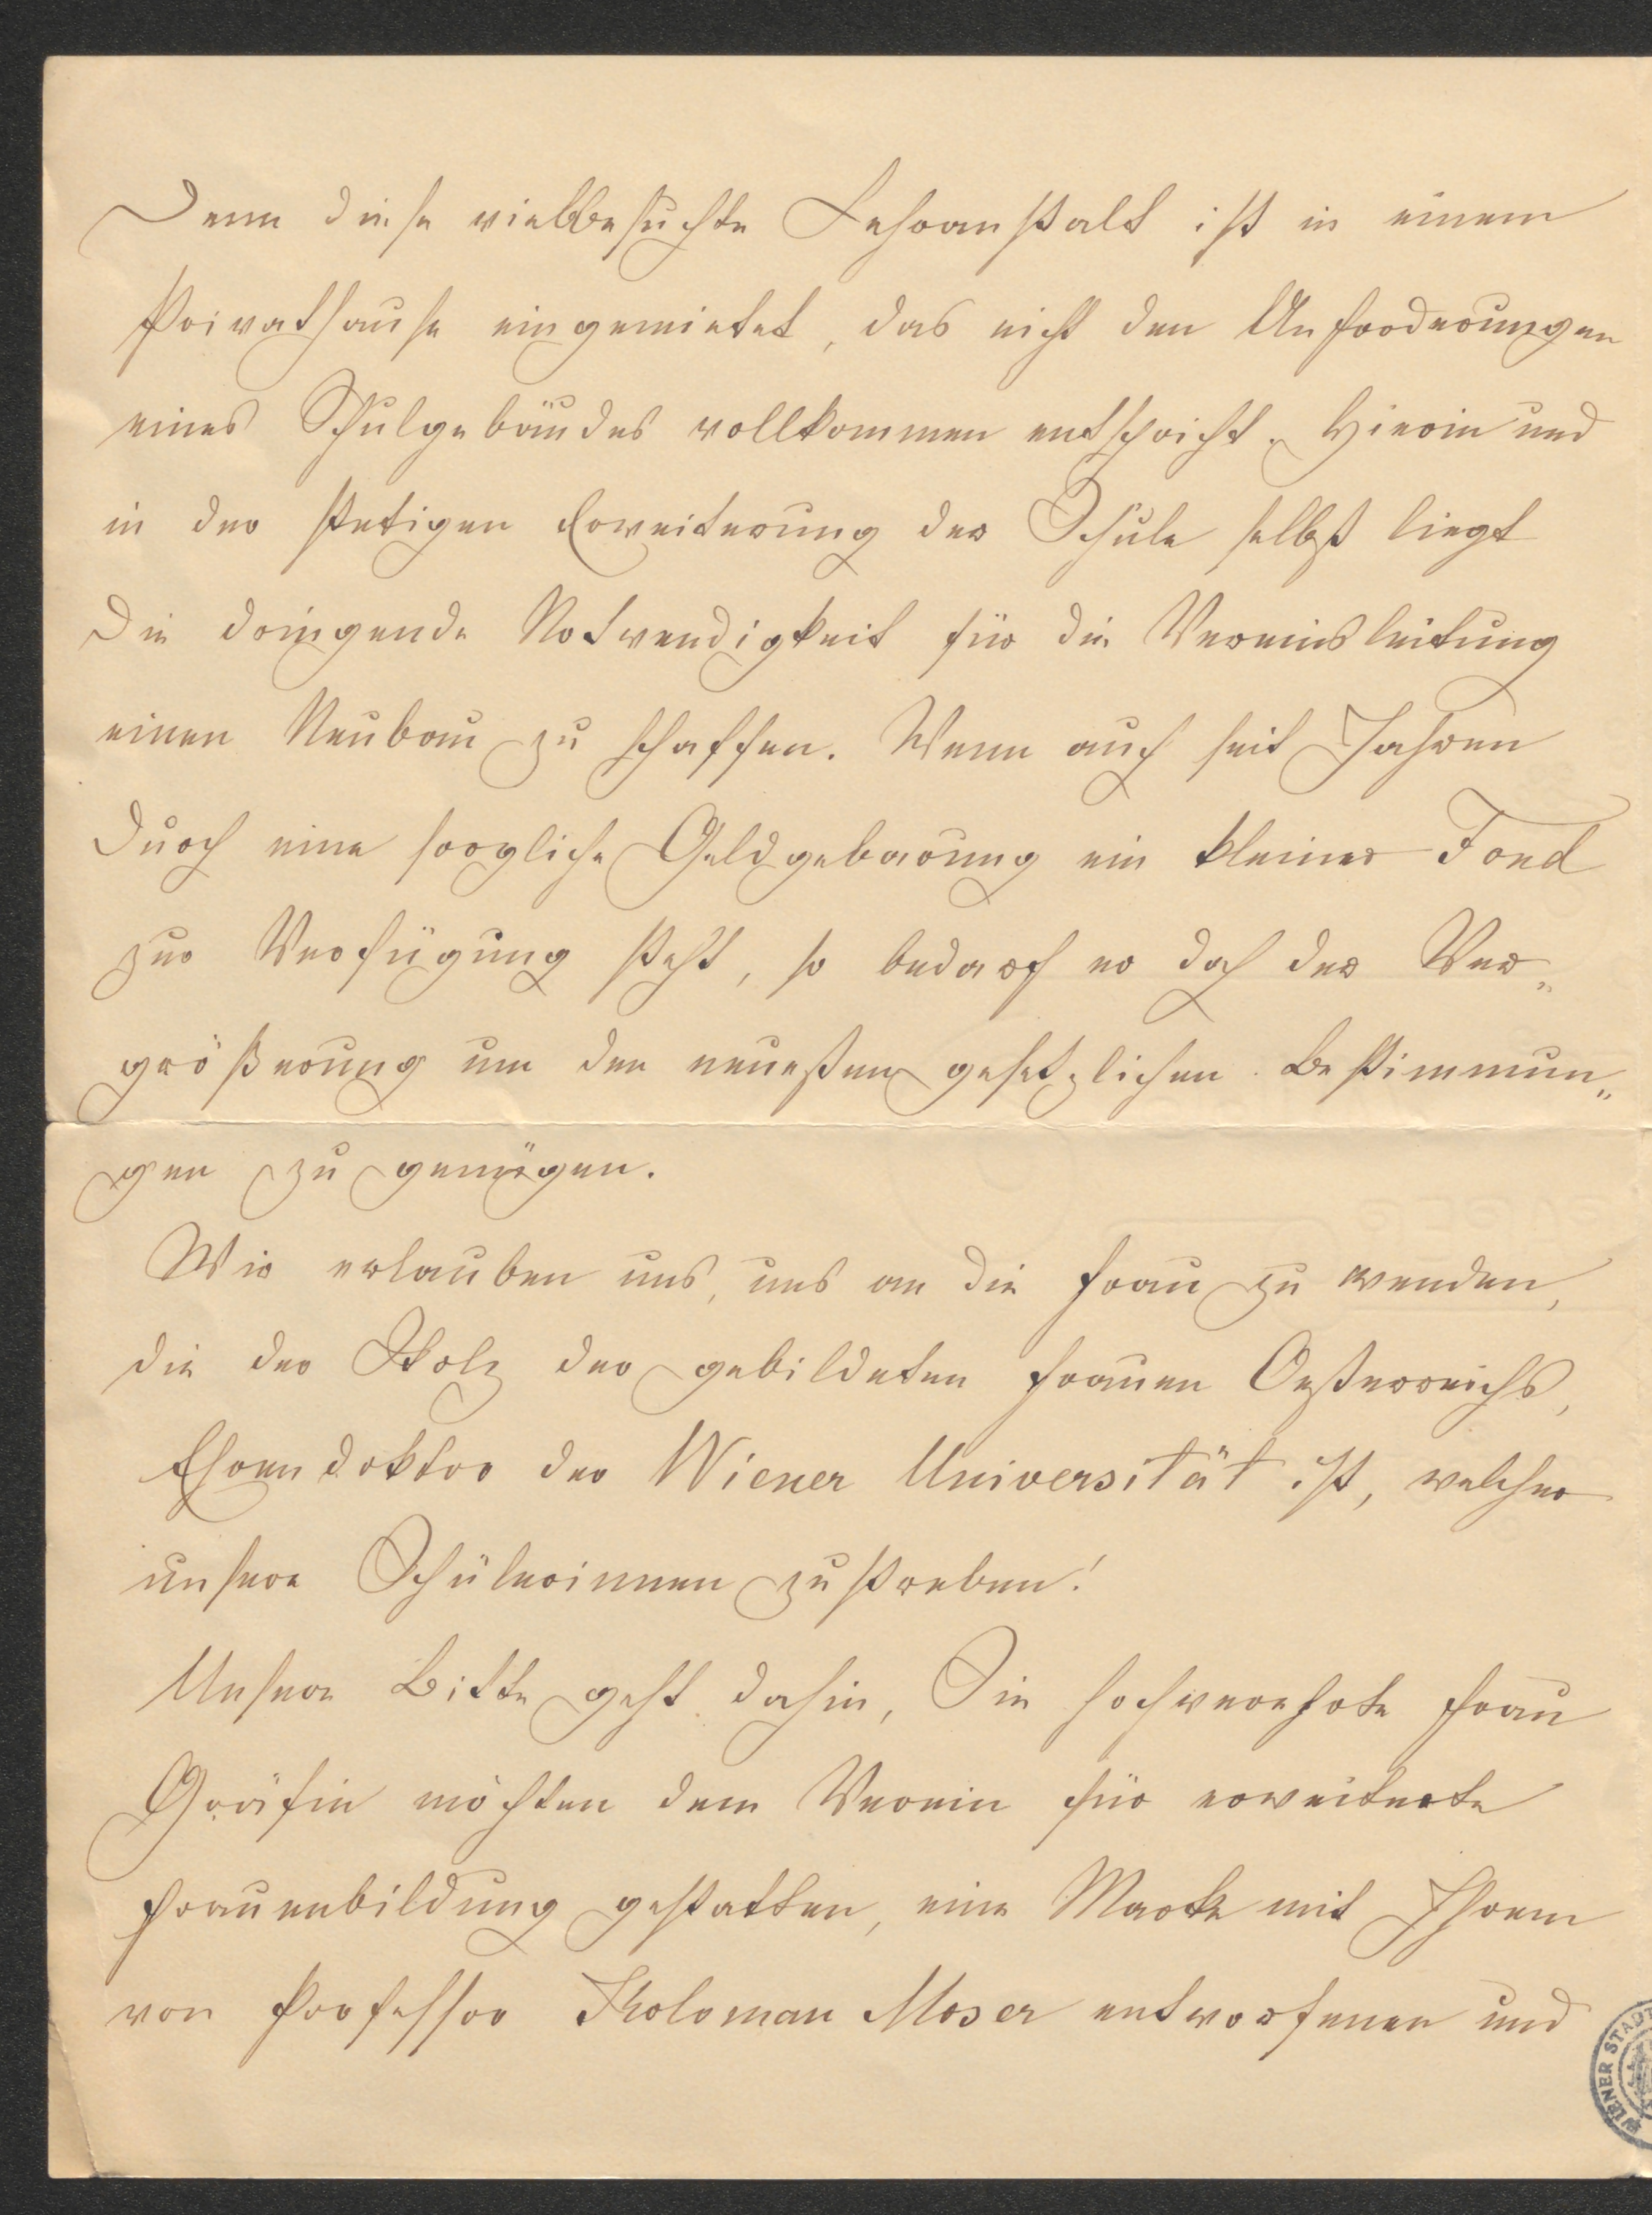 Denn diese vielbesuchte Lehranstalt ist in einem
Privathause eingemietet, das nicht den Anforderungen
eines Schulgebäudes vollkommen entspricht. Hierin und
in der stetigen Erweiterung der Schule selbst liegt
die dringende Notwendigkeit für die Vereinsleitung
einen Neubau zu schaffen. Wenn auch seit Jahren
durch eine sorgliche Geldgebarung ein kleiner Fond
zur Verfügung steht, so bedarf er doch der Ver„
größerung um den neuesten gesetzlichen Bestimmun„
gen zu genügen.
Wir erlauben uns, uns an die Frau zu wenden,
die der Stolz der gebildeten Frauen Oesterreichs,
Ehrendoktor der Wiener Universität ist, welcher
unsere Schülerinnen zustreben!
Unsere Bitte geht dahin, Sie hochverehrte Frau
Gräfin möchten dem Verein für erweiterte
Frauenbildung gestatten, eine Marke mit Ihrem
von Professor Koloman Moser entworfenen und
WIENER STADT